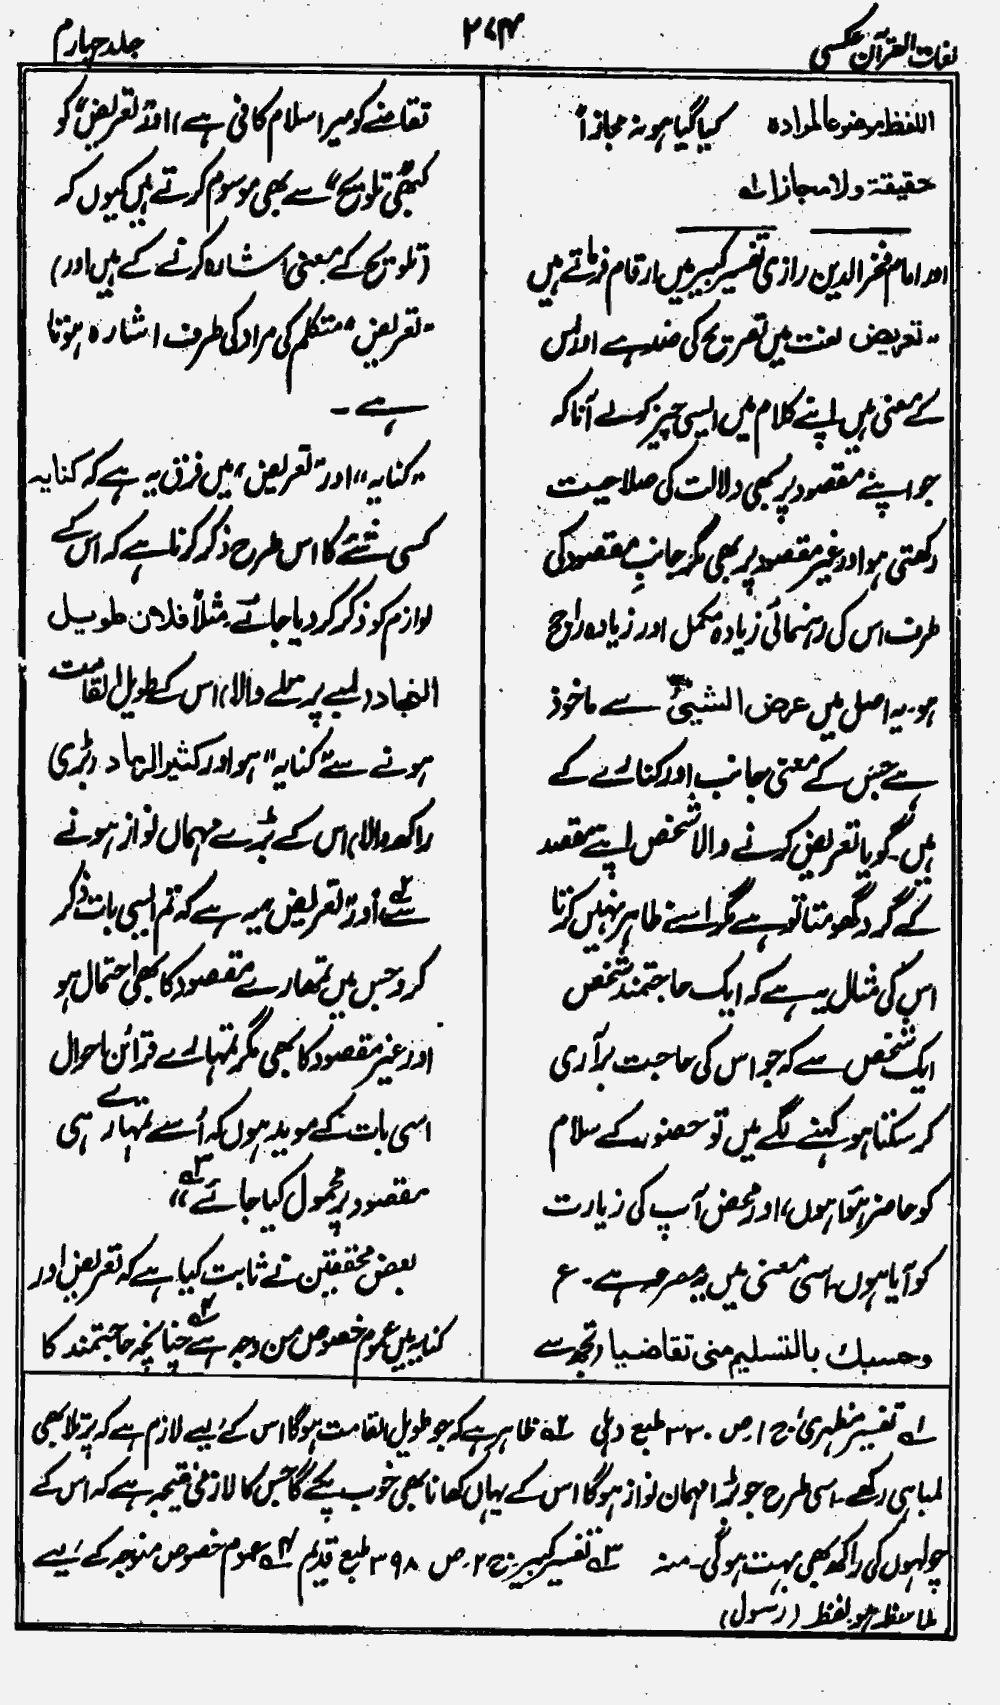 لغات القرآن عکسی
۲۷۴
جلد چہارم
اللفظ موضوعا لمرادہ کیا گیا ہو نہ مجازاً
حقیقۃ ولا مجازا لہ
اور امام فخر الدین رازی تفسیر کبیر میں ارقام فرماتے ہیں
"تعریض لغت میں تصریح کی ضد ہے اور اس
کے معنی ہیں اپنے کلام میں ایسی چیز کو لے آنا کہ
جو اپنے مقصود پر بھی دلالت کی صلاحیت
رکھتی ہو اور غیر مقصود پر بھی مگر جانبِ مقصود کی
طرف اس کی رہنمائی زیادہ مکمل اور زیادہ راجح
ہو۔ یہ اصل میں عرض الشیئ سے ماخوذ
ہے جس کے معنی جانب اور کنارے کے
ہیں۔ گویا تعریض کرنے والا شخص اپنے مقصد
کے گرد گھومتا تو ہے مگر اسے ظاہر نہیں کرتا
اس کی مثال یہ ہے کہ ایک حاجتمند شخص
ایک شخص سے کہ جو اس کی حاجت برآری
کر سکتا ہو کہنے لگے میں تو حضور کے سلام
کو حاضر ہوا ہوں، اور محض آپ کی زیارت
کو آیا ہوں۔ اسی معنی میں یہ مصرعہ ہے۔ ع
وحسبك بالتسليم منى تقاضيا (تجھ سے
تقاضے کو میرا سلام کافی ہے) اور "تعریض" کو
کبھی "تلویح" سے بھی موسوم کرتے ہیں کیوں کہ
(تلویح کے معنی اشارہ کرنے کے ہیں اور)
"تعریض" متکلم کی مراد کی طرف اشارہ ہوتا
ہے۔
"کنایہ" اور "تعریض" میں فرق یہ ہے کہ کنایہ
کسی شئے کا اس طرح ذکر کرنا ہے کہ اس کے
لوازم کو ذکر کر دیا جائے۔ مثلاً فلان طویل
النجاد (لمبے پرتلے والا) اس کے طویل القامت
ہونے سے "کنایہ" ہو اور کثیر الرماد (بڑی
راکھ والا) اس کے بڑے مہماں نواز ہونے
سے۲ اور "تعریض" یہ ہے کہ تم ایسی بات ذکر
کرو جس میں تمہارے مقصود کا بھی احتمال ہو
اور غیر مقصود کا بھی مگر تمہارے قرائن احوال
اسی بات کے موید ہوں کہ اُسے تمہارے ہی
مقصود پر محمول کیا جائے"۳
بعض محققین نے ثابت کیا ہے کہ تعریض اور
کنایہ میں عموم خصوص من وجہ ہے۴ چنانچہ حاجتمند کا
۱ تفسیر مظہری، ج ۱، ص ۳۳۰ طبع دہلی ۲ ظاہر ہے کہ جو طویل القامت ہوگا اس کے لیے لازم ہے کہ پرتلا بھی
لمبا ہی رکھے۔ اسی طرح جو بڑا مہمان نواز ہوگا اس کے یہاں کھانا بھی خوب پکے گا جس کا لازمی نتیجہ ہے کہ اس کے
چولہوں کی راکھ بھی بہت ہوگی۔ منہ ۳ تفسیر کبیر، ج ۲، ص ۳۹۸ طبع قدیم ۴ عموم خصوص من وجہ کے لیے
ملاحظہ ہو لفظ (رسول)